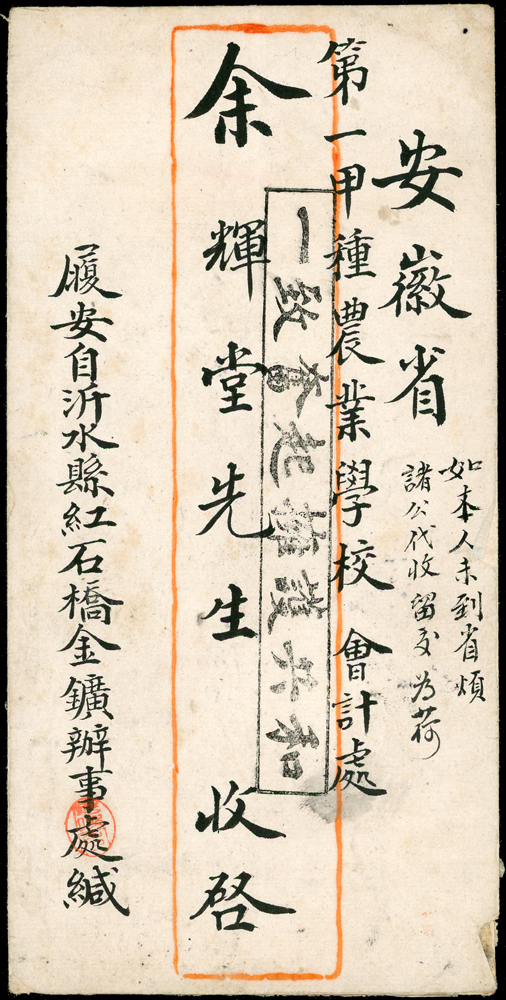 安徽省
如本人未到省煩
諸公代收留交為荷
第一甲種農業學校會計處
一致奮起擁護共和
余輝堂先生 收啓
履安自沂水縣紅石橋金鑛辦事處緘